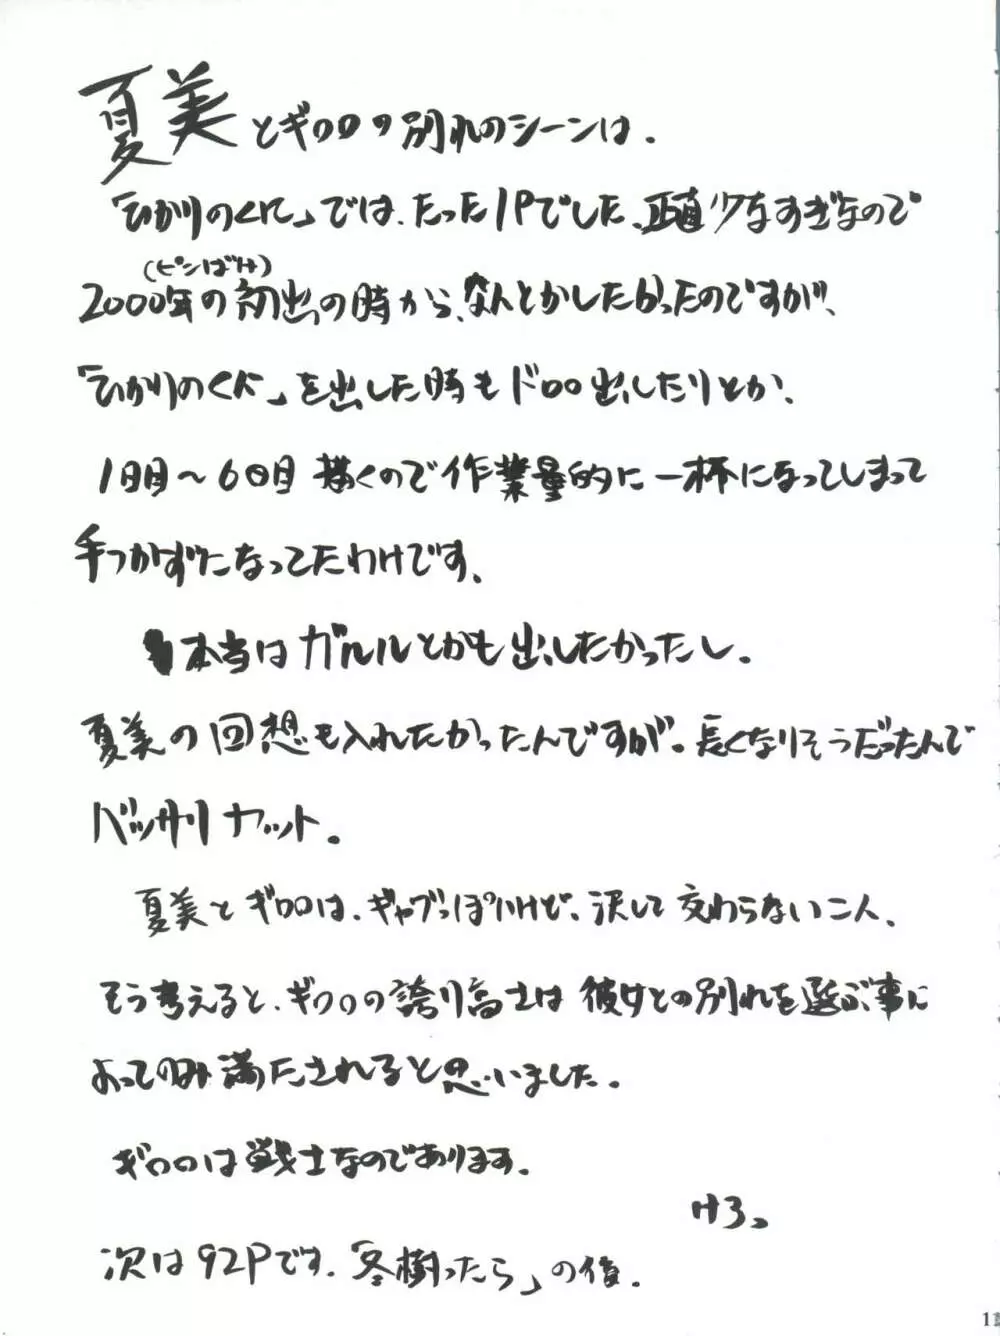 夏美とギロロの別れのシーンは。
「ひかりのくに」では、たった1Pでした、正直少なすぎなので
(ピンぼけ)
2000年の初出の時から、なんとかしたかったのですが、
「ひかりのくに」を出した時もドロロ出したりとか、
1日目〜6日目 描くので作業量的に一杯になってしまって
手つかずになってたわけです、
本当はガルルとかも出したかったし。
夏美の回想も入れたかったんですが。長くなりそうだったんで
バッサリカット。
夏美とギロロは、ギャグっぽいけど、決して交わらない二人、
そう考えると、ギロロの誇り高さは彼女との別れを選ぶ事に
よってのみ満たされると思いました。
ギロロは戦士なのであります。
けろっ
次は92Pです。「冬樹ったら」の後。
11